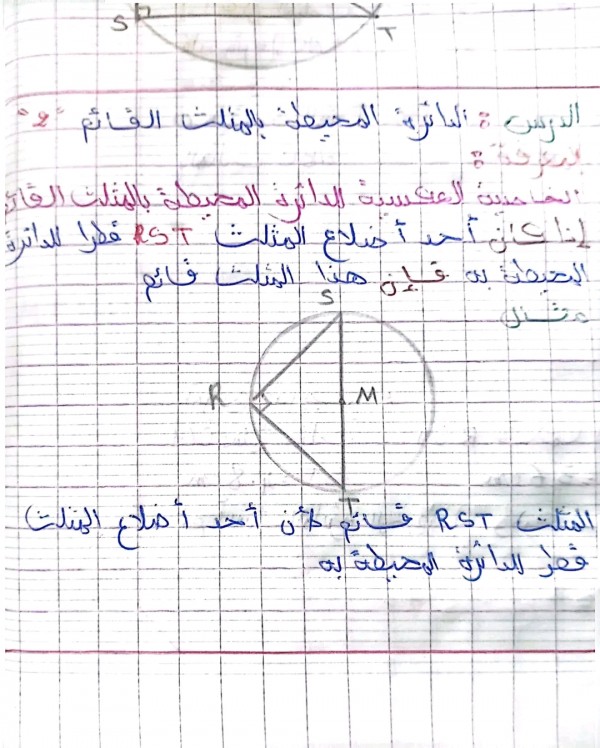 S T
الدرس : الدائرة المحيطة بالمثلث القائم "2"
المعرفة :
الخاصية العكسية للدائرة المحيطة بالمثلث القائم
إذا كان أحد أضلاع المثلث RST قطرا للدائرة
المحيطة به فإن هذا المثلث قائم
مثال
S
R M
T
المثلث RST قائم لأن أحد أضلاع المثلث
قطر للدائرة المحيطة به